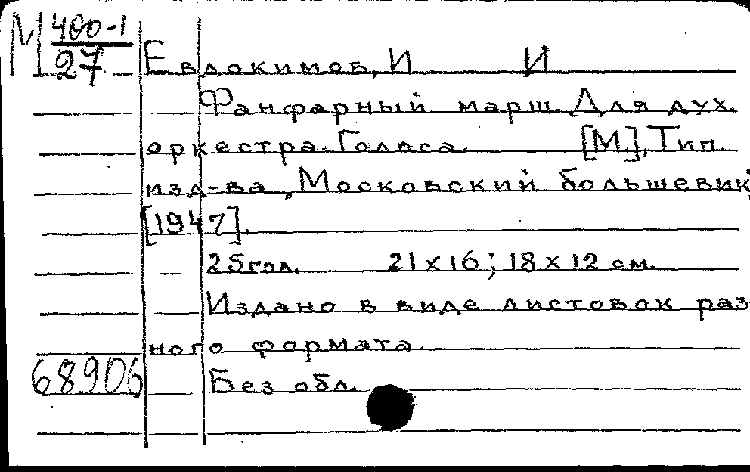 М 480-1
27
Евдокимов, И И
Фанфарный марш. Для дух.
оркестра. Голоса. [М], Тип.
изд-ва „Московский большевик,
[1947].
25 гол. 21 х 16; 18 х 12 см.
Издано в виде листовок раз
ного формата.
68906 Без обл.